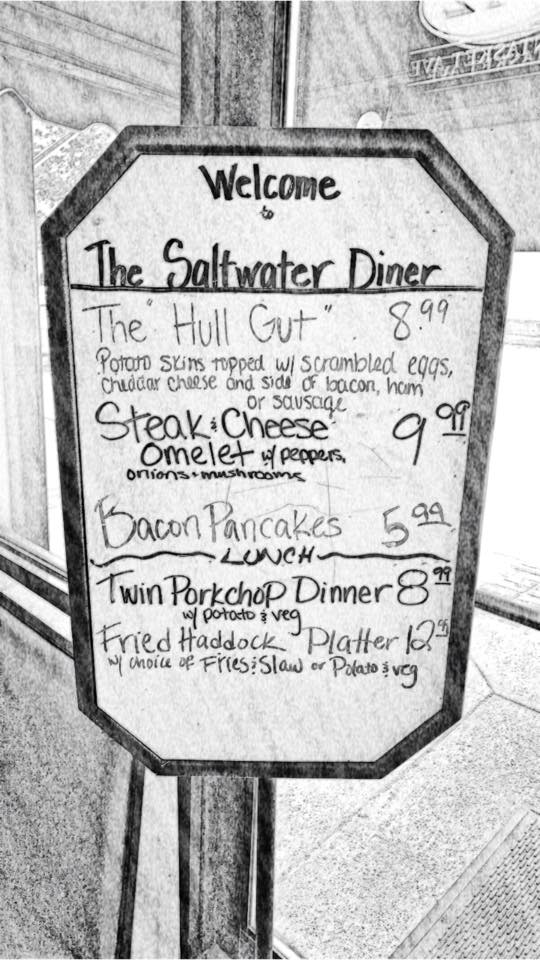 Welcome
to
The Saltwater Diner
The "Hull Gut" 8.99
Potato skins topped w/ scrambled eggs,
cheddar cheese and side of bacon, ham
or sausage
Steak & Cheese 9 99
Omelet w/ peppers,
onions + mushrooms
Bacon Pancakes 5 99
LUNCH
Twin Porkchop Dinner 8 99
w/ potato & veg
Fried Haddock Platter 12
w/ choice of Fries & Slaw or Potato & veg